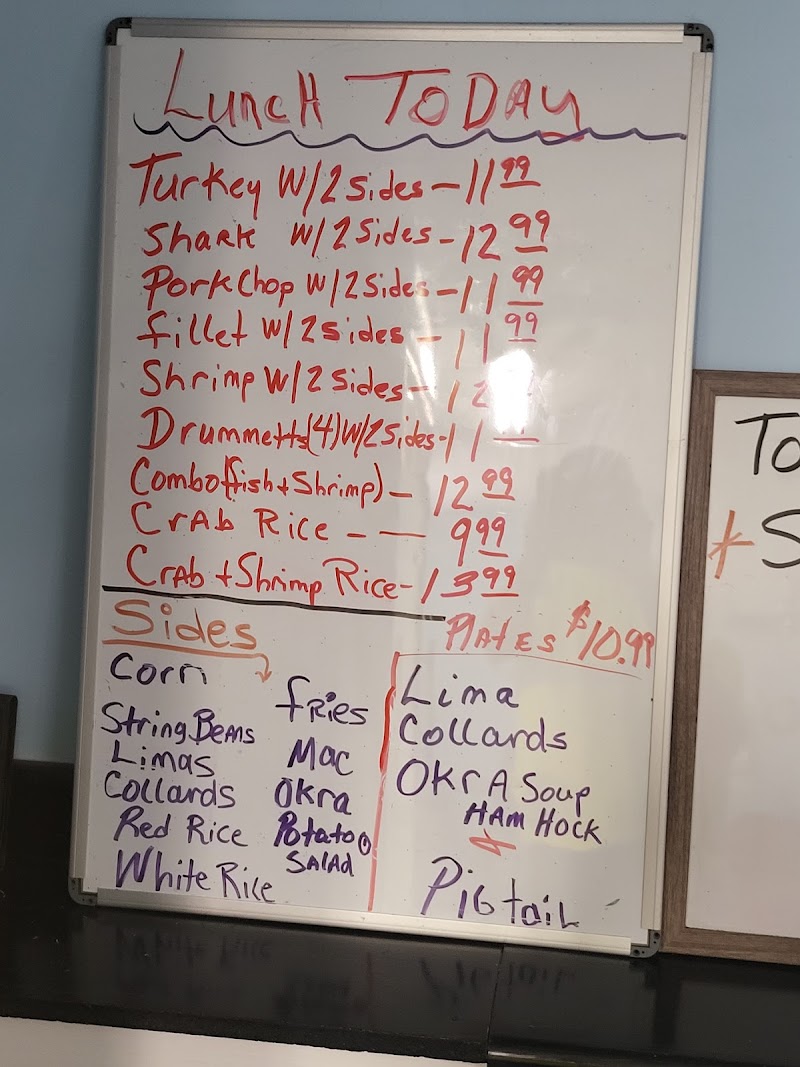 Lunch Today
Turkey W/2 Sides - 11 99
Shark W/2 Sides - 12 99
PorkChop W/2 Sides - 11 99
fillet W/2 sides - 11 99
Shrimp W/2 Sides - 12
Drummetts(4) W/2 Sides - 11
Combo(fish + Shrimp) - 12 99
CrAb Rice - — 9 99
CrAb + Shrimp Rice - 13 99
Sides
Corn
fRies
String BeAns
Limas
Mac
Collards
Okra
Red Rice
Potato
SalAd
White Rice
PlAtEs $10.99
Lima
Collards
OKrA Soup
HAm HocK
+
PiGtaiL
To
+ S